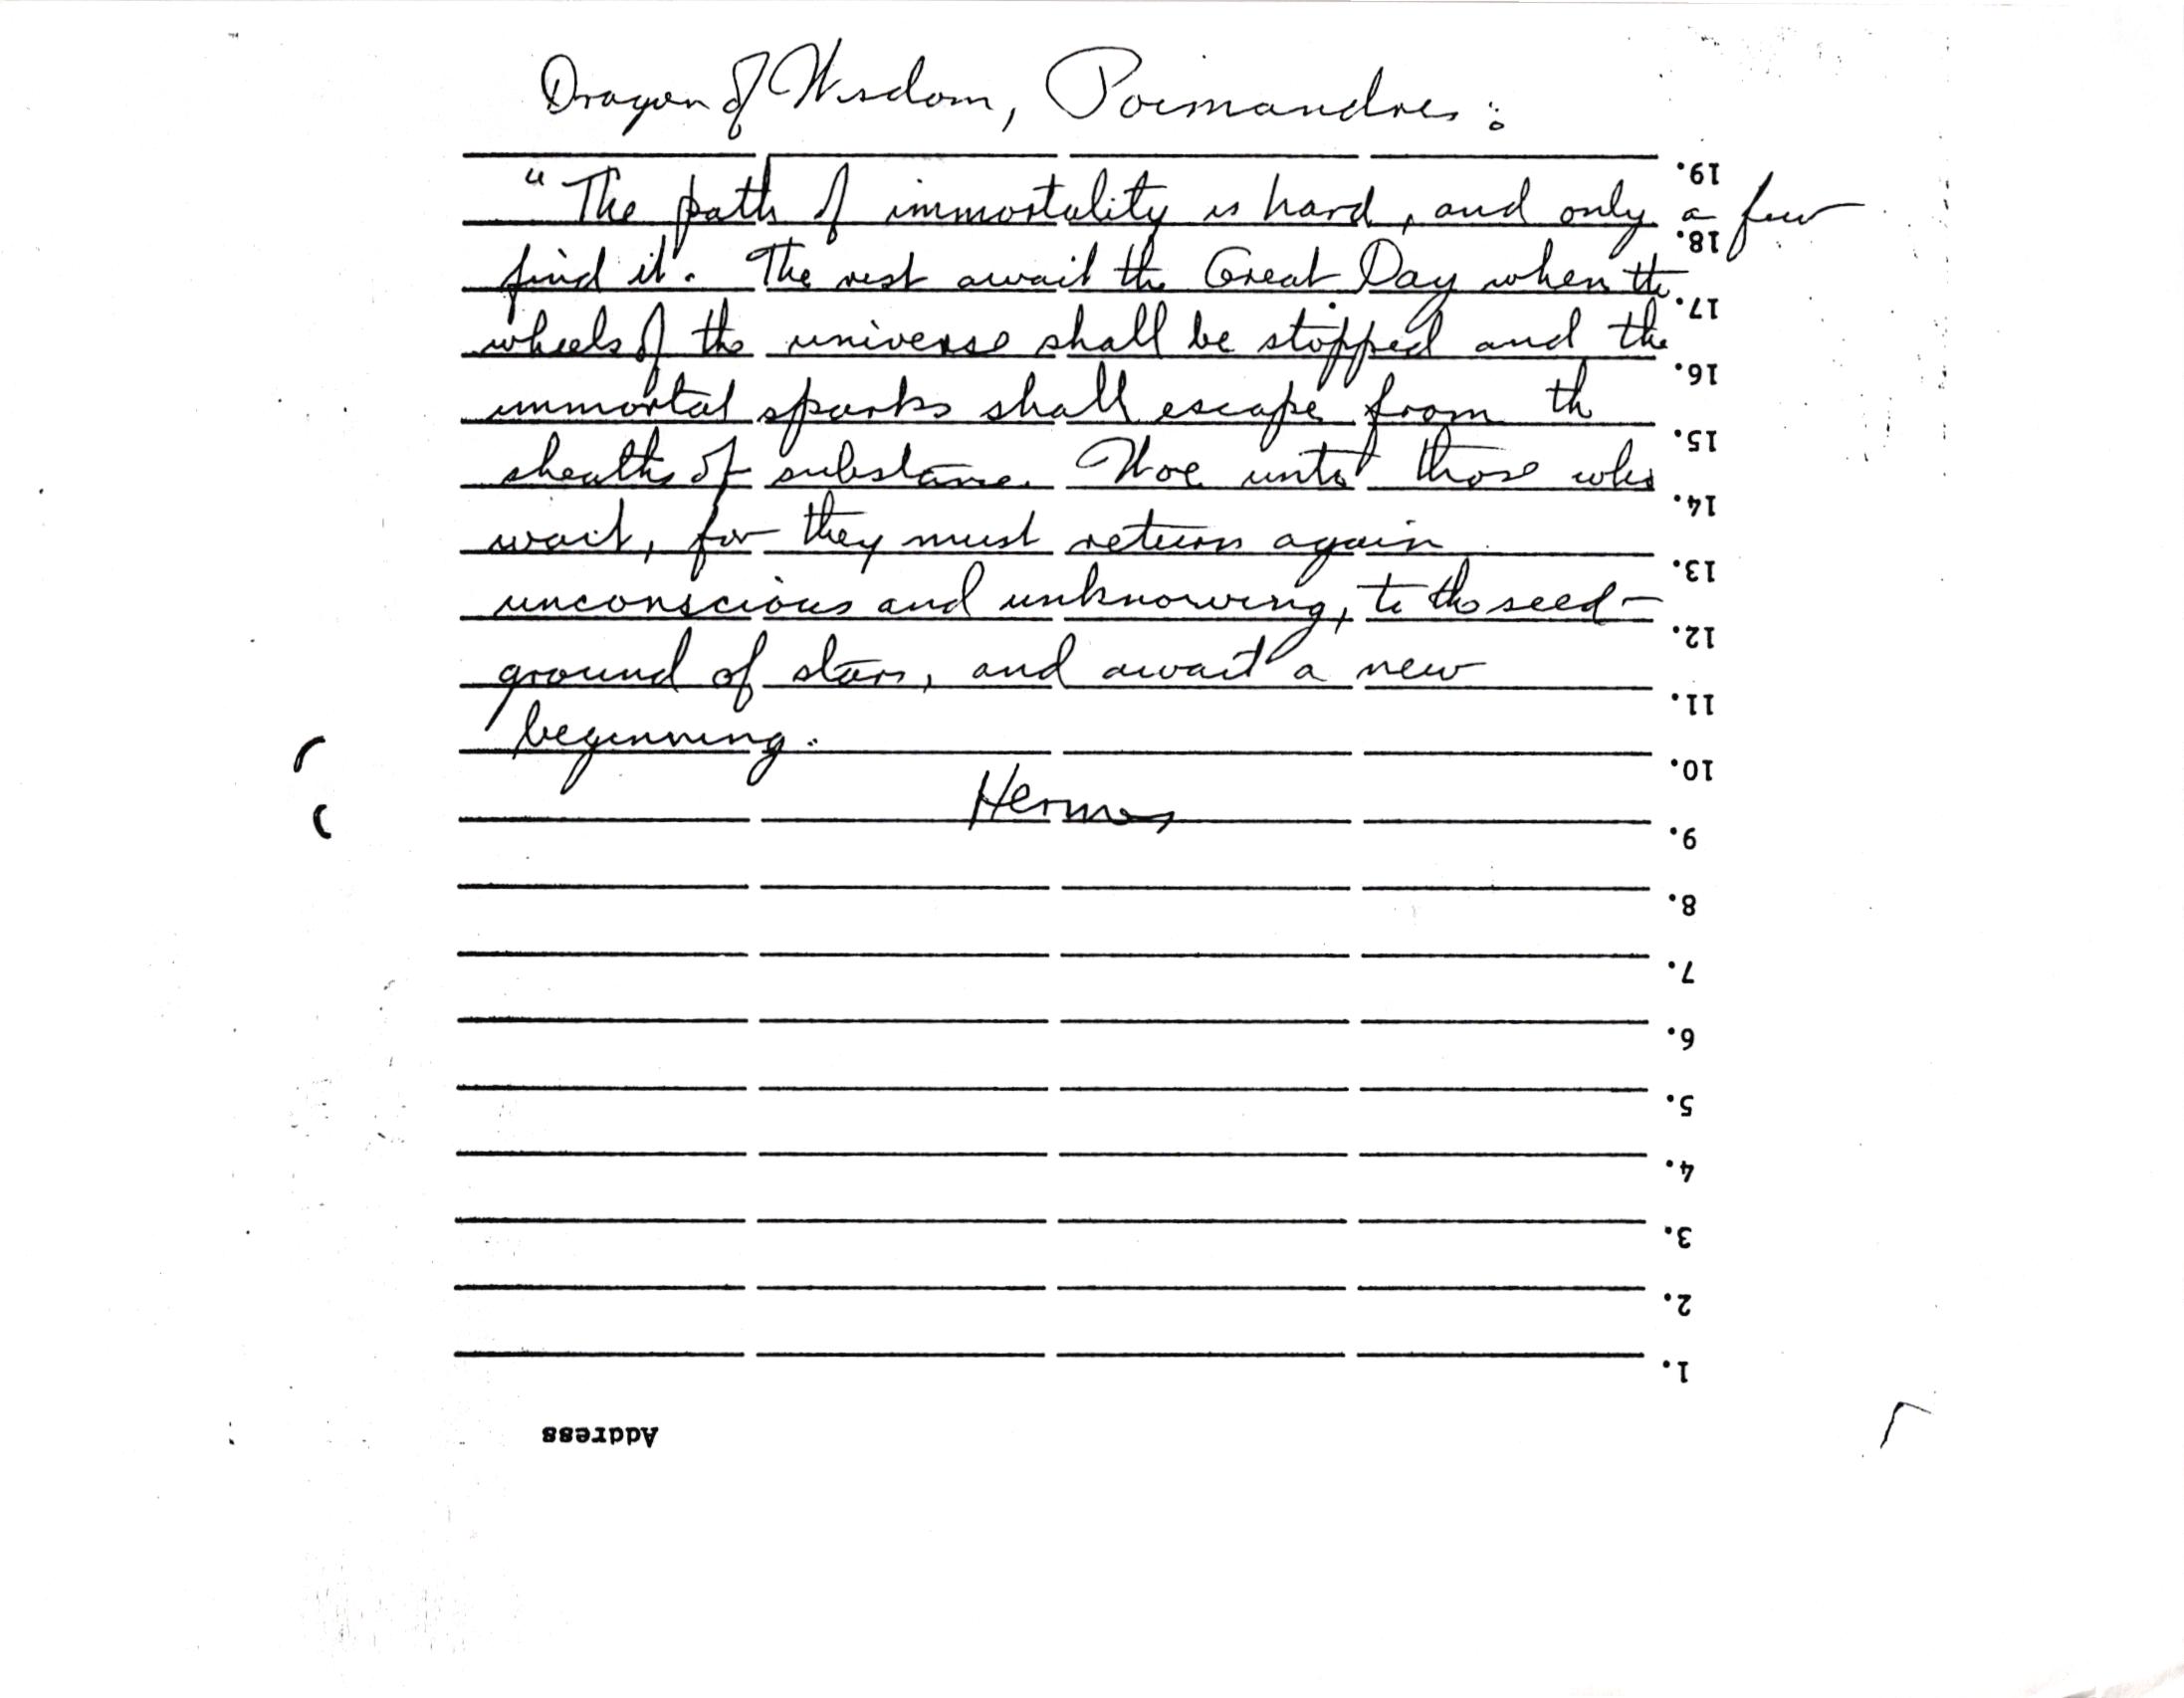 Dragon of Wisdom, Poimandres:
19.
"The path of immortality is hard, and only a few
18.
find it. The rest await the Great Day when the
17.
wheels of the universe shall be stopped and the
16.
immortal sparks shall escape from th
15.
sheaths of substance. Woe unto those who
14.
wait, for they must return again
13.
unconscious and unknowing, to the seed-
12.
ground of stars, and await a new
11.
beginning.
10.
Hermes
9.
8.
7.
6.
5.
4.
3.
2.
1.
Address